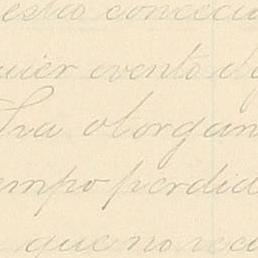 esta conocid
uier evento d
Ha otorgan
empo perdid
que no rec